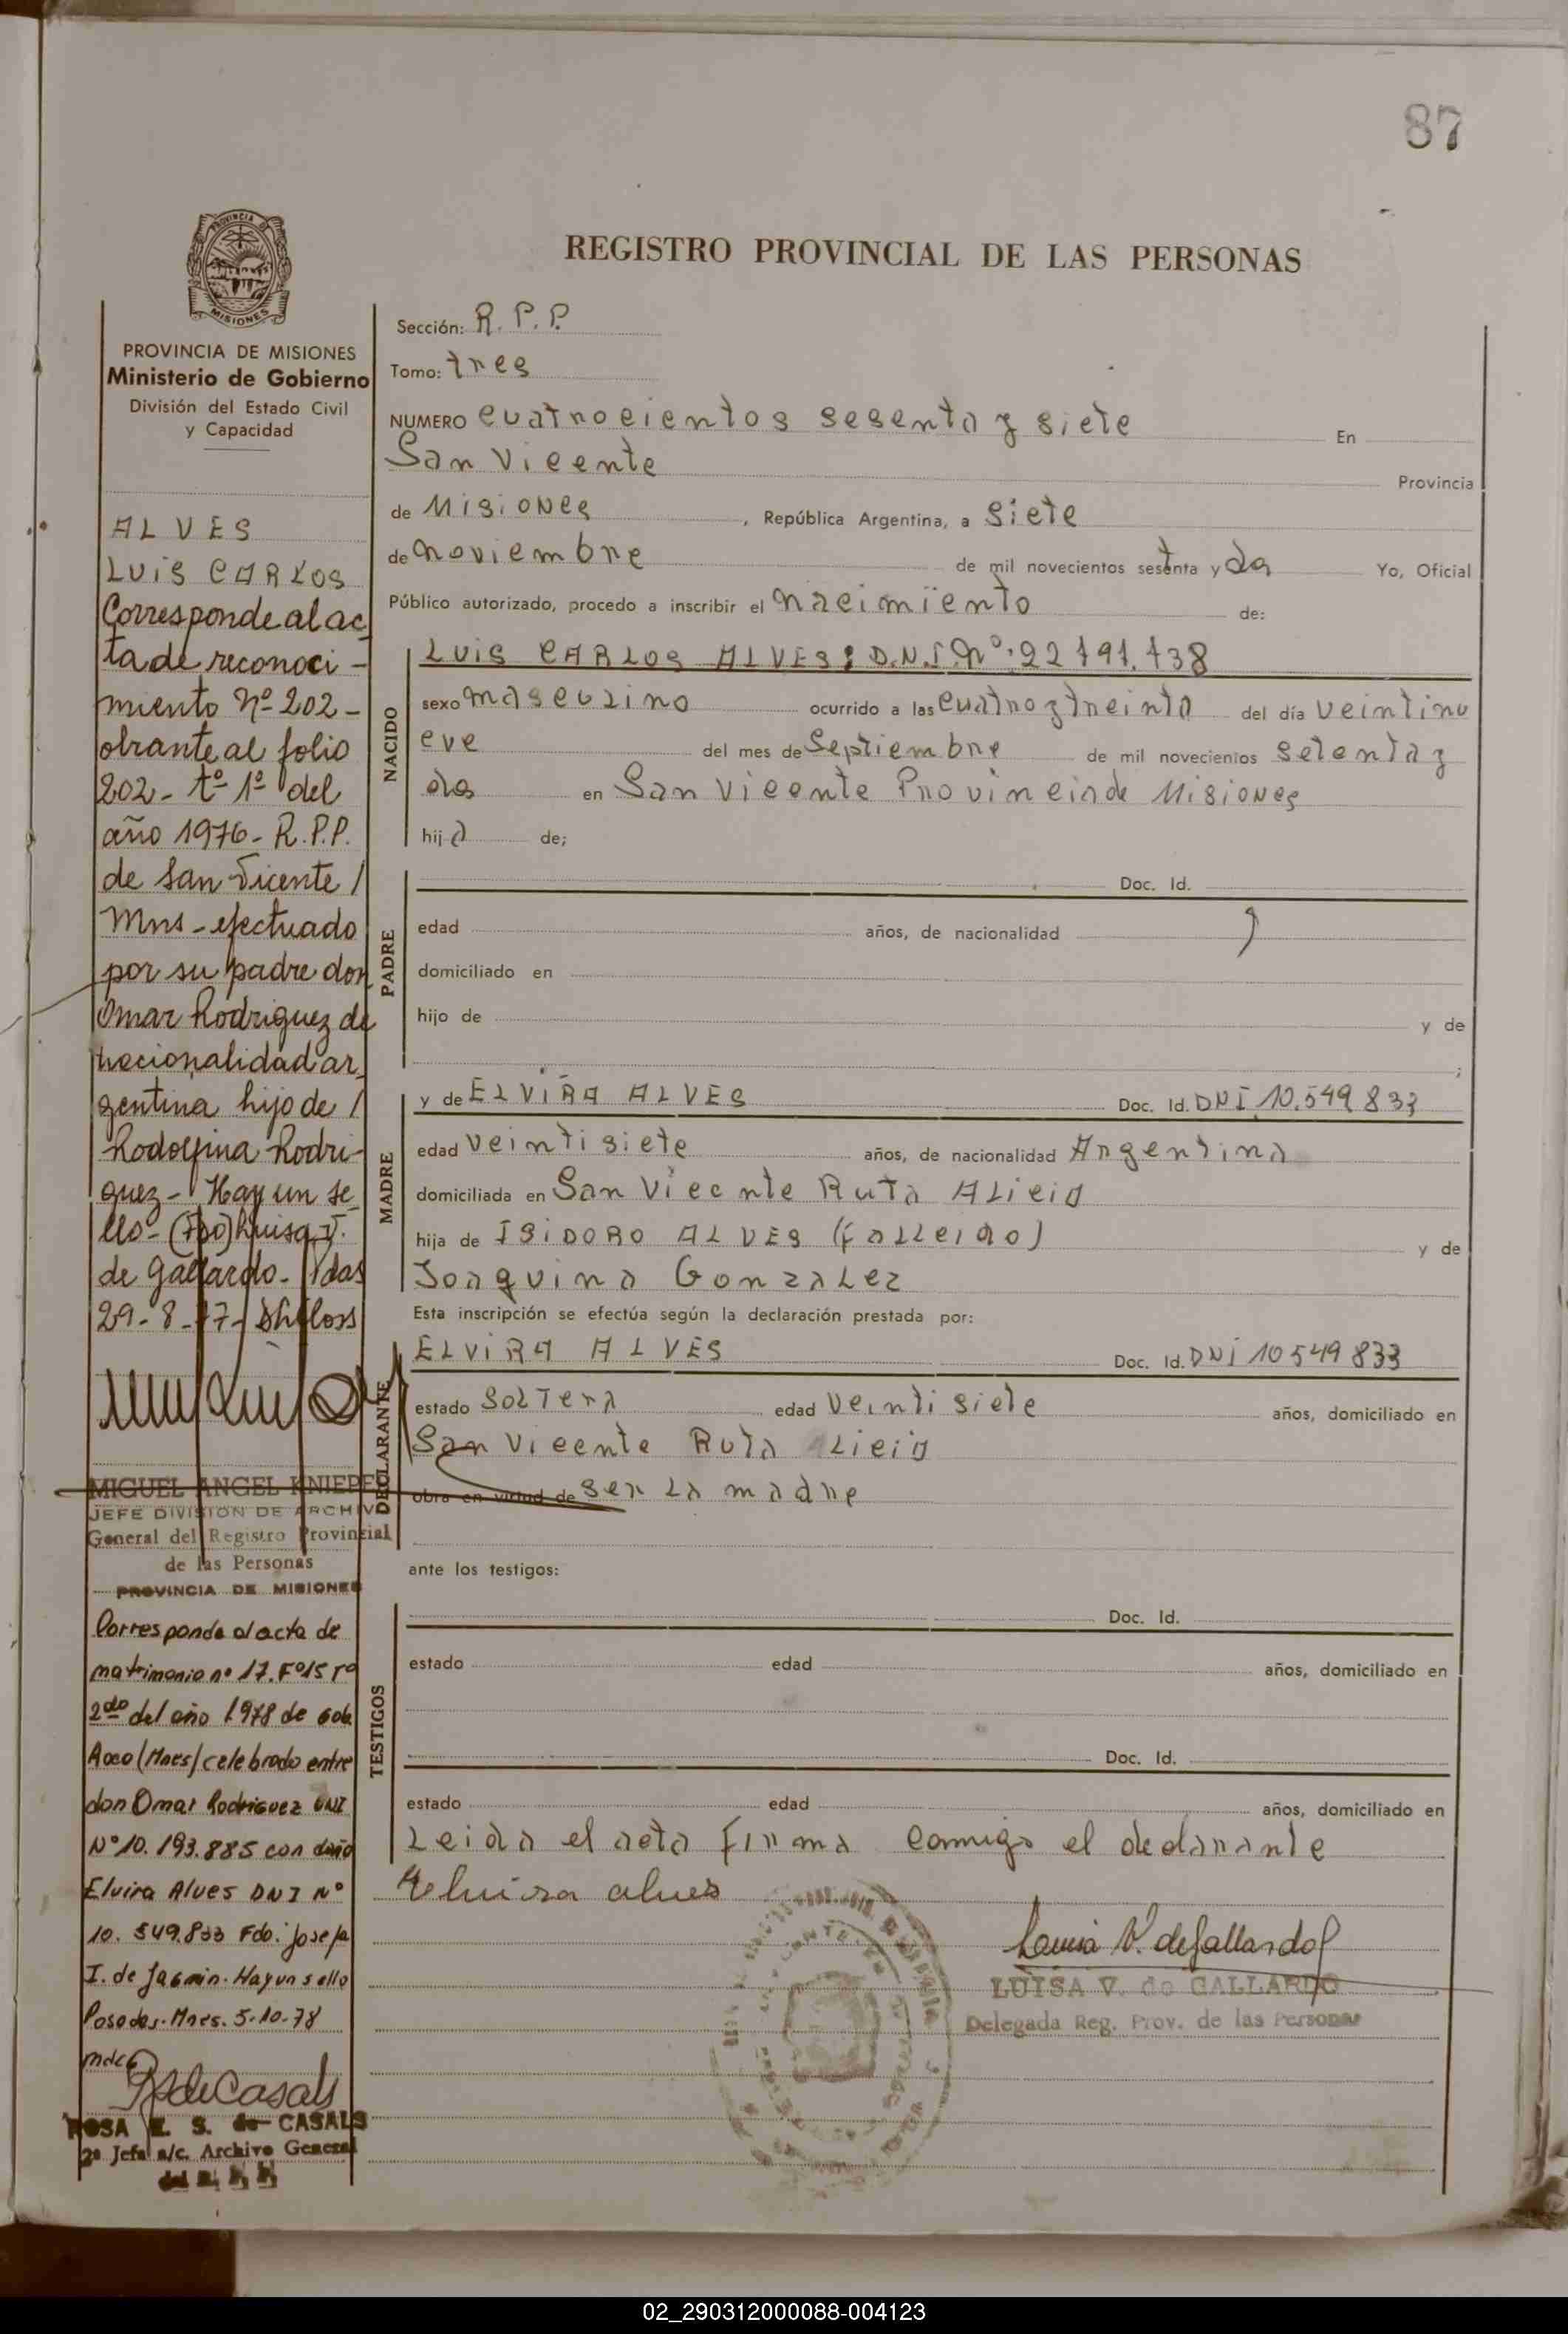 87
PROVINCIA
MISIONES
REGISTRO PROVINCIAL DE LAS PERSONAS
PROVINCIA DE MISIONES
Ministerio de Gobierno
División del Estado Civil
y Capacidad
ALVES
LUIS CARLOS
Corresponde al ac
ta de reconoci-
miento Nº 202-
obrante al folio
202- tº 1º del
año 1976- R.P.P.
de San Vicente/
Mns- efectuado
por su padre don
Omar Rodriguez de
nacionalidad ar
gentina hijo de/
Rodolfina Rodri-
guez- Hay un se-
llo- (Fdo) Luisa V.
de Gallardo- Pdas
29-8-77-
MIGUEL ANGEL KNIEPE
JEFE DIVISION DE ARCHIV
General del Registro Provincial
de las Personas
PROVINCIA DE MISIONES
Corresponde al acta de
matrimonio nº 17. Fº15 Tº
2do del año 1978 de
(Mnes) celebrado entre
don Omar Rodriguez DNI
Nº 10.193.885 con doña
Elvira Alves DNI Nº
10.549.833 Fdo: Josefa
I. de Jasmin. Hay un sello
Posadas. Mnes. 5-10-78
mdc
R de Casals
ROSA E. S. de CASALS
2º Jefa a/c. Archivo General
Sección: R.P.P.
Tomo: tres
NUMERO cuatrocientos sesenta y siete En
San Vicente Provincia
de Misiones , República Argentina, a siete
de noviembre de mil novecientos sestenta y dos Yo, Oficial
Público autorizado, procedo a inscribir el nacimiento de:
NACIDO
LUIS CARLOS ALVES: D.N.I. Nº: 22.191.738
sexo masculino ocurrido a las cuatro y treinta del día veintinu
eve del mes de Septiembre de mil novecientos setenta y
dos en San Vicente Provincia de Misiones
hijo de;
PADRE
Doc. Id.
edad años, de nacionalidad
domiciliado en
hijo de y de
;
MADRE
y de ELVIRA ALVES Doc. Id. DNI 10.549 833
edad veintisiete años, de nacionalidad Argentina
domiciliada en San Vicente Ruta Alicia
hija de ISIDORO ALVES (fallecido) y de
Joaquina Gonzalez
Esta inscripción se efectúa según la declaración prestada por:
DECLARANTE
ELVIRA ALVES Doc. Id. DNI 10549833
estado Soltera edad veintisiete años, domiciliado en
San Vicente Ruta Alicia
obra en virtud de ser la madre
ante los testigos:
TESTIGOS
Doc. Id.
estado edad años, domiciliado en
Doc. Id.
estado edad años, domiciliado en
Leida el acta firma conmigo el declarante
Elvira alves
Luisa V. de Gallardo
LUISA V. de GALLARDO
Delegada Reg. Prov. de las Personas
02_290312000088-004123